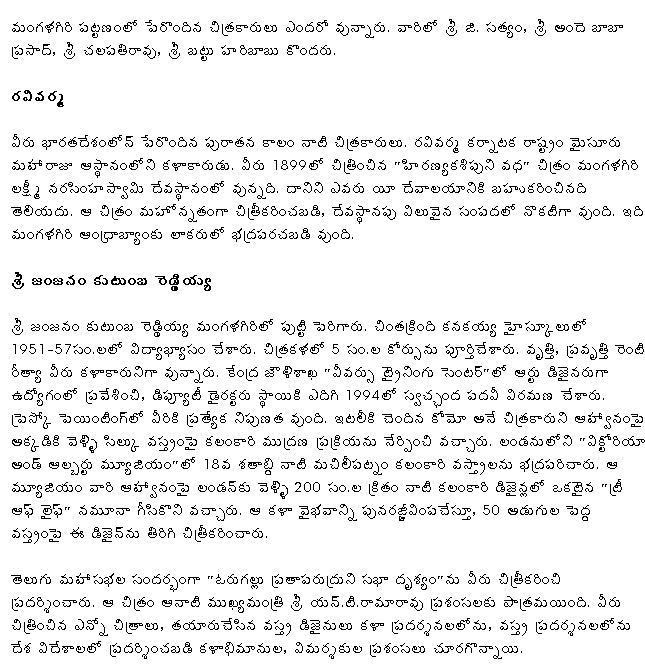 మంగళగిరి పట్టణంలో పేరొందిన చిత్రకారులు ఎందరో వున్నారు. వారిలో శ్రీ జి. సత్యం, శ్రీ అందె బాబా
ప్రసాద్, శ్రీ చలపతిరావు, శ్రీ బట్టు హరిబాబు కొందరు.
రవివర్మ
వీరు భారతదేశంలోన్ పేరొందిన పురాతన కాలం నాటి చిత్రకారులు. రవివర్మ కర్నాటక రాష్ట్రం మైసూరు
మహారాజు ఆస్థానంలోని కళాకారుడు. వీరు 1899లో చిత్రించిన "హిరణ్యకశిపుని వధ" చిత్రం మంగళగిరి
లక్ష్మీ నరసింహస్వామి దేవస్థానంలో వున్నది. దానిని ఎవరు యీ దేవాలయానికి బహుకరించినది
తెలియదు. ఆ చిత్రం మహోన్నతంగా చిత్రీకరించబడి, దేవస్థానపు విలువైన సంపదలో నొకటిగా వుంది. ఇది
మంగళగిరి ఆంధ్రాబ్యాంకు లాకరులో భద్రపరచబడి వుంది.
శ్రీ జంజనం కుటుంబ రెడ్డియ్య
శ్రీ జంజనం కుటుంబ రెడ్డియ్య మంగళగిరిలో పుట్టి పెరిగారు. చింతక్రింది కనకయ్య హైస్కూలులో
1951-57సం.లలో విద్యాభ్యాసం చేశారు. చిత్రకళలో 5 సం.ల కోర్సును పూర్తిచేశారు. వృత్తి, ప్రవృత్తి రెంటి
రీత్యా వీరు కళాకారునిగా వున్నారు. కేంద్ర జౌళిశాఖ "వీవర్సు ట్రైనింగు సెంటర్"లో ఆర్టు డిజైనరుగా
ఉద్యోగంలో ప్రవేశించి, డిప్యూటీ డైరక్టరు స్థాయికి ఎదిగి 1994లో స్వచ్ఛంద పదవీ విరమణ చేశారు.
ప్రెస్కో పెయింటింగ్‌లో వీరికి ప్రత్యేక నిపుణత వుంది. ఇటలీకి చెందిన కోమో అనే చిత్రకారుని ఆహ్వానంపై
అక్కడికి వెళ్ళి సిల్కు వస్త్రంపై కలంకారి ముద్రణ ప్రక్రియను నేర్పించి వచ్చారు. లండనులోని "విక్టోరియా
అండ్ ఆల్బర్టు మ్యూజియం"లో 18వ శతాబ్ది నాటి మచిలీపట్నం కలంకారి వస్త్రాలను భద్రపరిచారు. ఆ
మ్యూజియం వారి ఆహ్వానంపై లండన్‌కు వెళ్ళి 200 సం.ల క్రితం నాటి కలంకారి డిజైన్లలో ఒకటైన "ట్రీ
ఆఫ్ లైఫ్" నమూనా గీసికొని వచ్చారు. ఆ కళా వైభవాన్ని పునరుజ్జీవింపచేస్తూ, 50 అడుగుల పెద్ద
వస్త్రంపై ఈ డిజైన్‌ను తిరిగి చిత్రీకరించారు.
తెలుగు మహాసభల సందర్భంగా "ఓరుగల్లు ప్రతాపరుద్రుని సభా దృశ్యం"ను వీరు చిత్రీకరించి
ప్రదర్శించారు. ఆ చిత్రం ఆనాటి ముఖ్యమంత్రి శ్రీ యన్.టి.రామారావు ప్రశంసలకు పాత్రమయింది. వీరు
చిత్రించిన ఎన్నో చిత్రాలు, తయారుచేసిన వస్త్ర డిజైనులు కళా ప్రదర్శనలలోను, వస్త్ర ప్రదర్శనలలోను
దేశ విదేశాలలో ప్రదర్శించబడి కళాభిమానుల, విమర్శకుల ప్రశంసలు చూరగొన్నాయి.